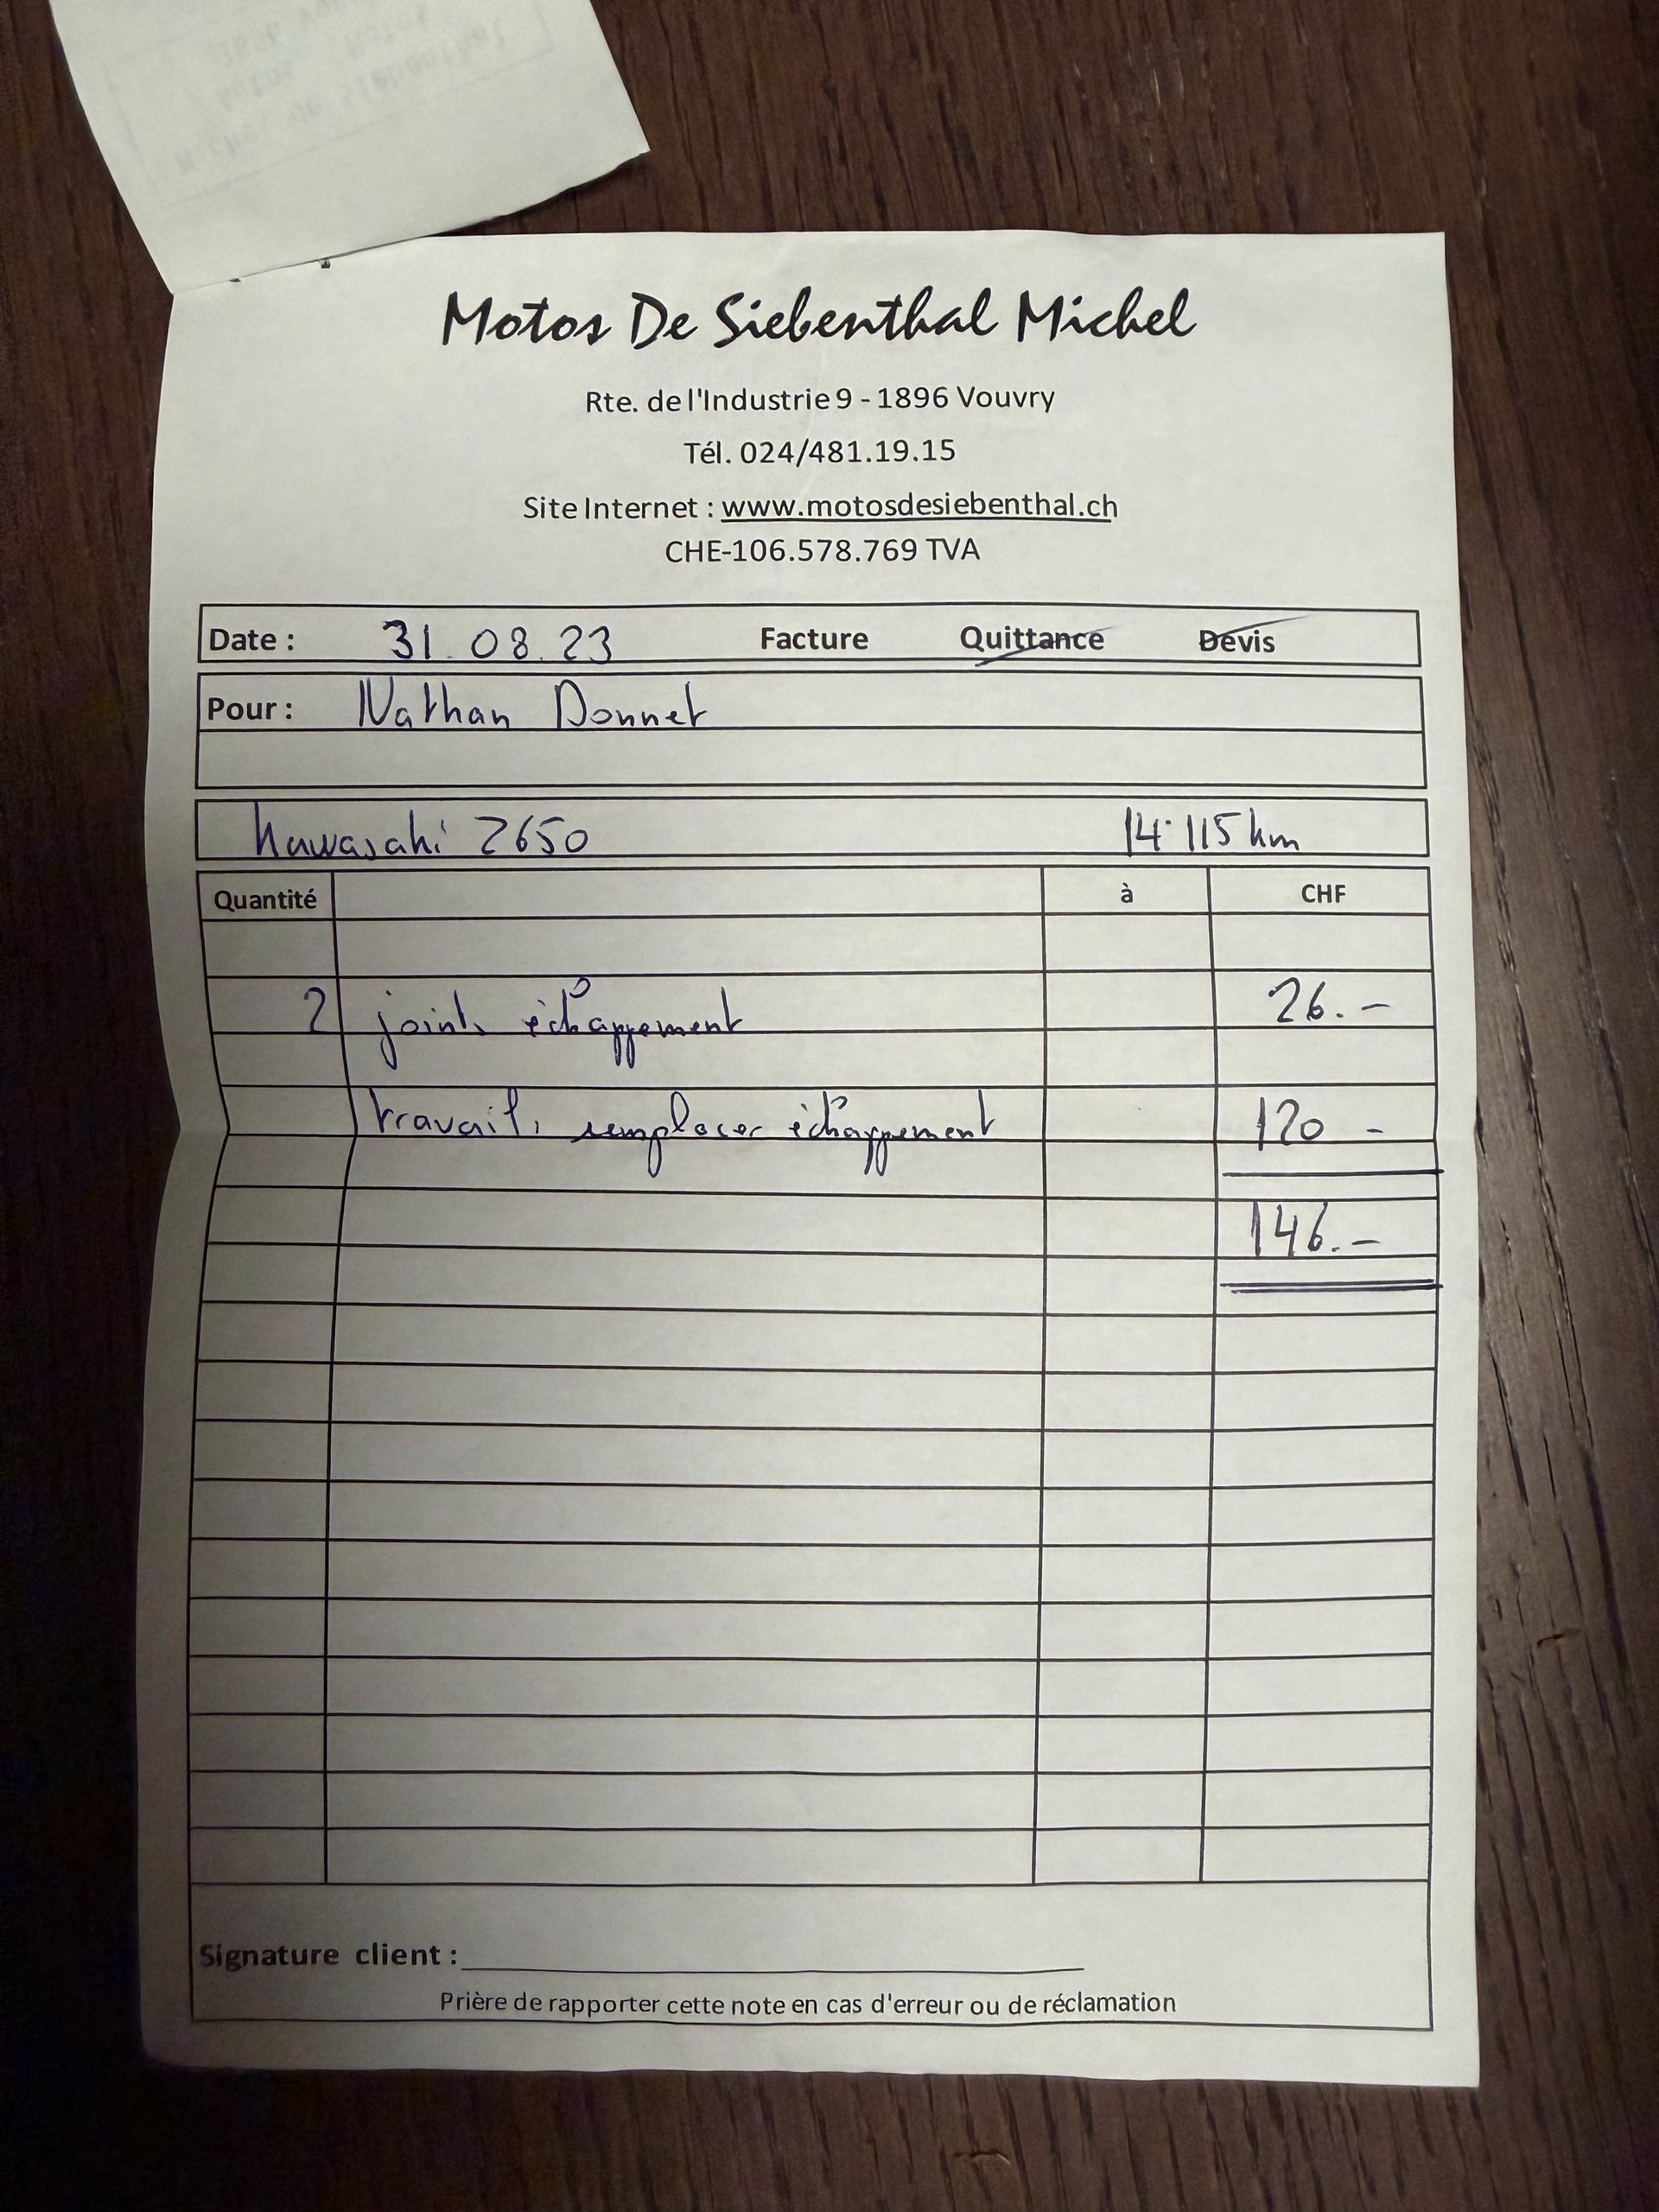 Motos De Siebenthal Michel
Rte. de l'Industrie 9 - 1896 Vouvry
Tél. 024/481.19.15
Site Internet : www.motosdesiebenthal.ch
CHE-106.578.769 TVA
Date : 31.08.23 Facture Quittance Devis
Pour : Nathan Donnet
Kawasaki Z650 14'115 km
Quantité à CHF
2 joints échappement 26.-
travail, remplacer échappement 120 -
146.-
Signature client :
Prière de rapporter cette note en cas d'erreur ou de réclamation